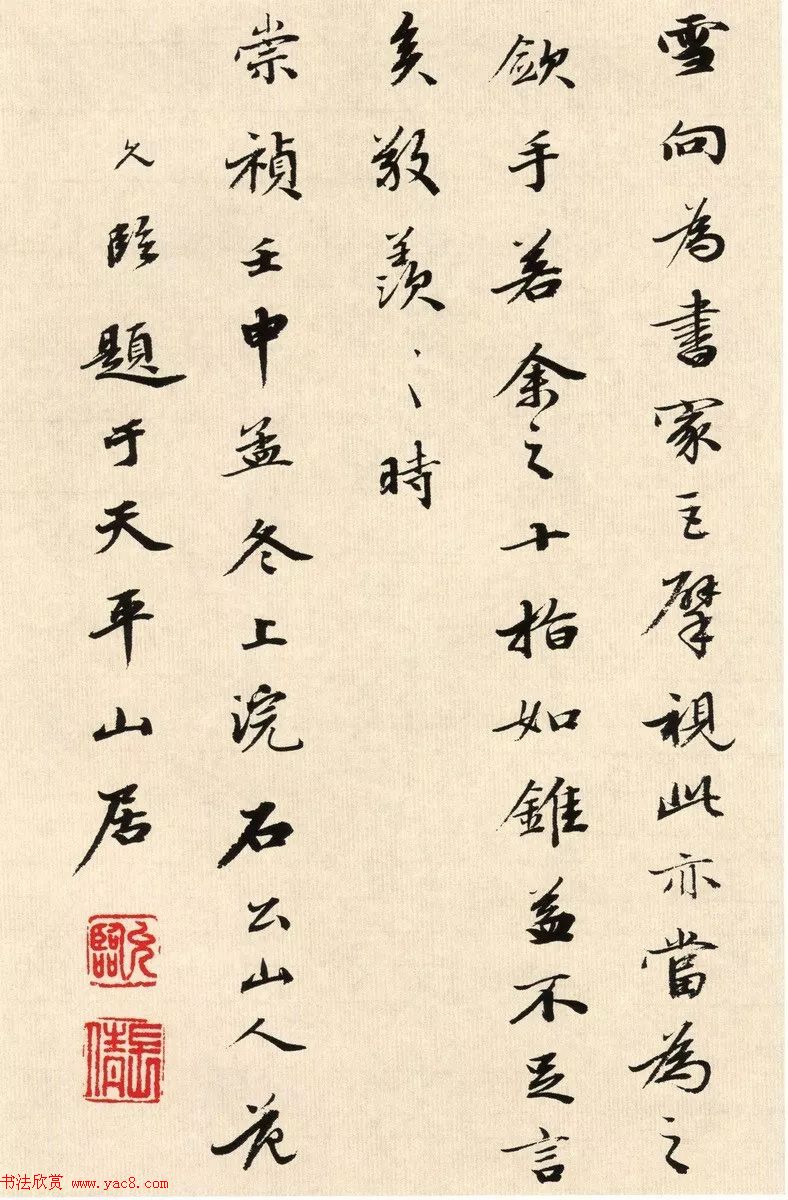 雪向為書家巨擘視此亦當為之
歛手若余之十指如錐益不足言
矣敬羨〻〻時
崇禎壬申孟冬上浣石公山人范
允臨題于天平山居
允臨
長倩
书法欣赏 www.yac8.com